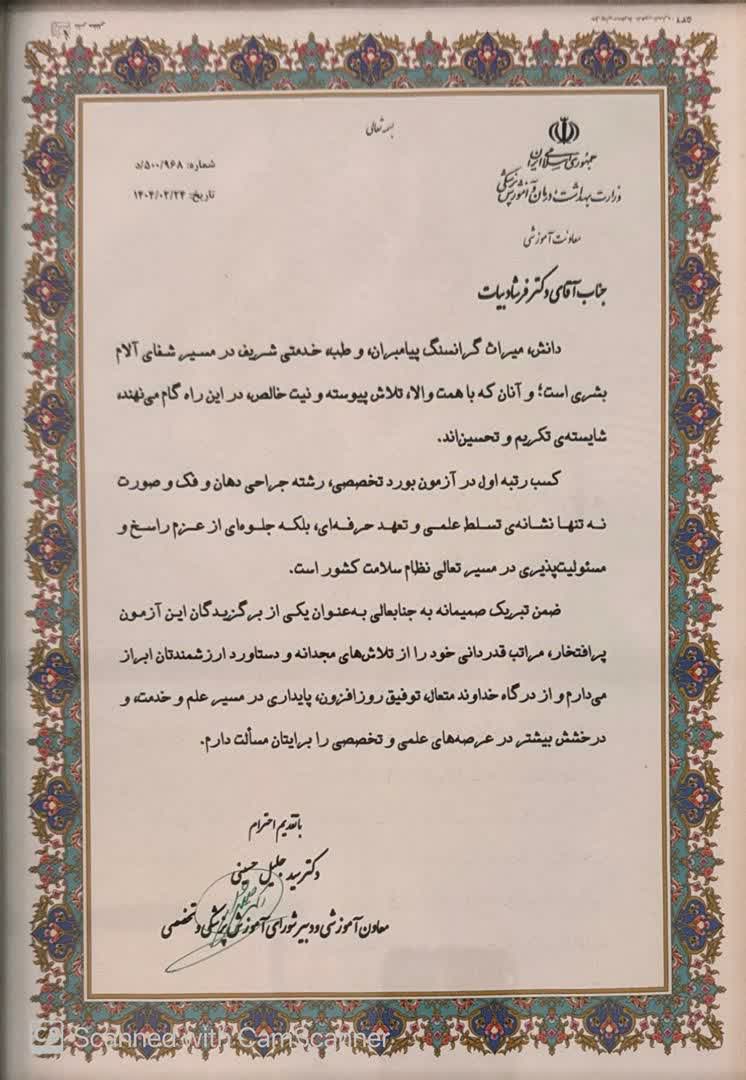 بسمه تعالی
جمهوری اسلامی ایران
وزارت بهداشت، درمان و آموزش پزشکی
معاونت آموزشی
شماره: ۵۰۰/۹۶۸/د
تاریخ: ۱۴۰۴/۰۲/۲۴
جناب آقای دکتر فرشاد بیات
دانش، میراث گرانسنگ پیامبران، و طب، خدمتی شریف در مسیر شفای آلام
بشری است؛ و آنان که با همت والا، تلاش پیوسته و نیت خالص، در این راه گام می‌نهند،
شایسته‌ی تکریم و تحسین‌اند.
کسب رتبه اول در آزمون بورد تخصصی، رشته جراحی دهان و فک و صورت
نه تنها نشانه‌ی تسلط علمی و تعهد حرفه‌ای، بلکه جلوه‌ای از عزم راسخ و
مسئولیت‌پذیری در مسیر تعالی نظام سلامت کشور است.
ضمن تبریک صمیمانه به جنابعالی به‌عنوان یکی از برگزیدگان این آزمون
پرافتخار، مراتب قدردانی خود را از تلاش‌های مجدانه و دستاورد ارزشمندتان ابراز
می‌دارم و از درگاه خداوند متعال، توفیق روزافزون، پایداری در مسیر علم و خدمت، و
درخشش بیشتر در عرصه‌های علمی و تخصصی را برایتان مسألت دارم.
با تقدیم احترام
دکتر سید جلیل حسینی
معاون آموزشی و دبیر شورای آموزش پزشکی و تخصصی
Scanned with CamScanner